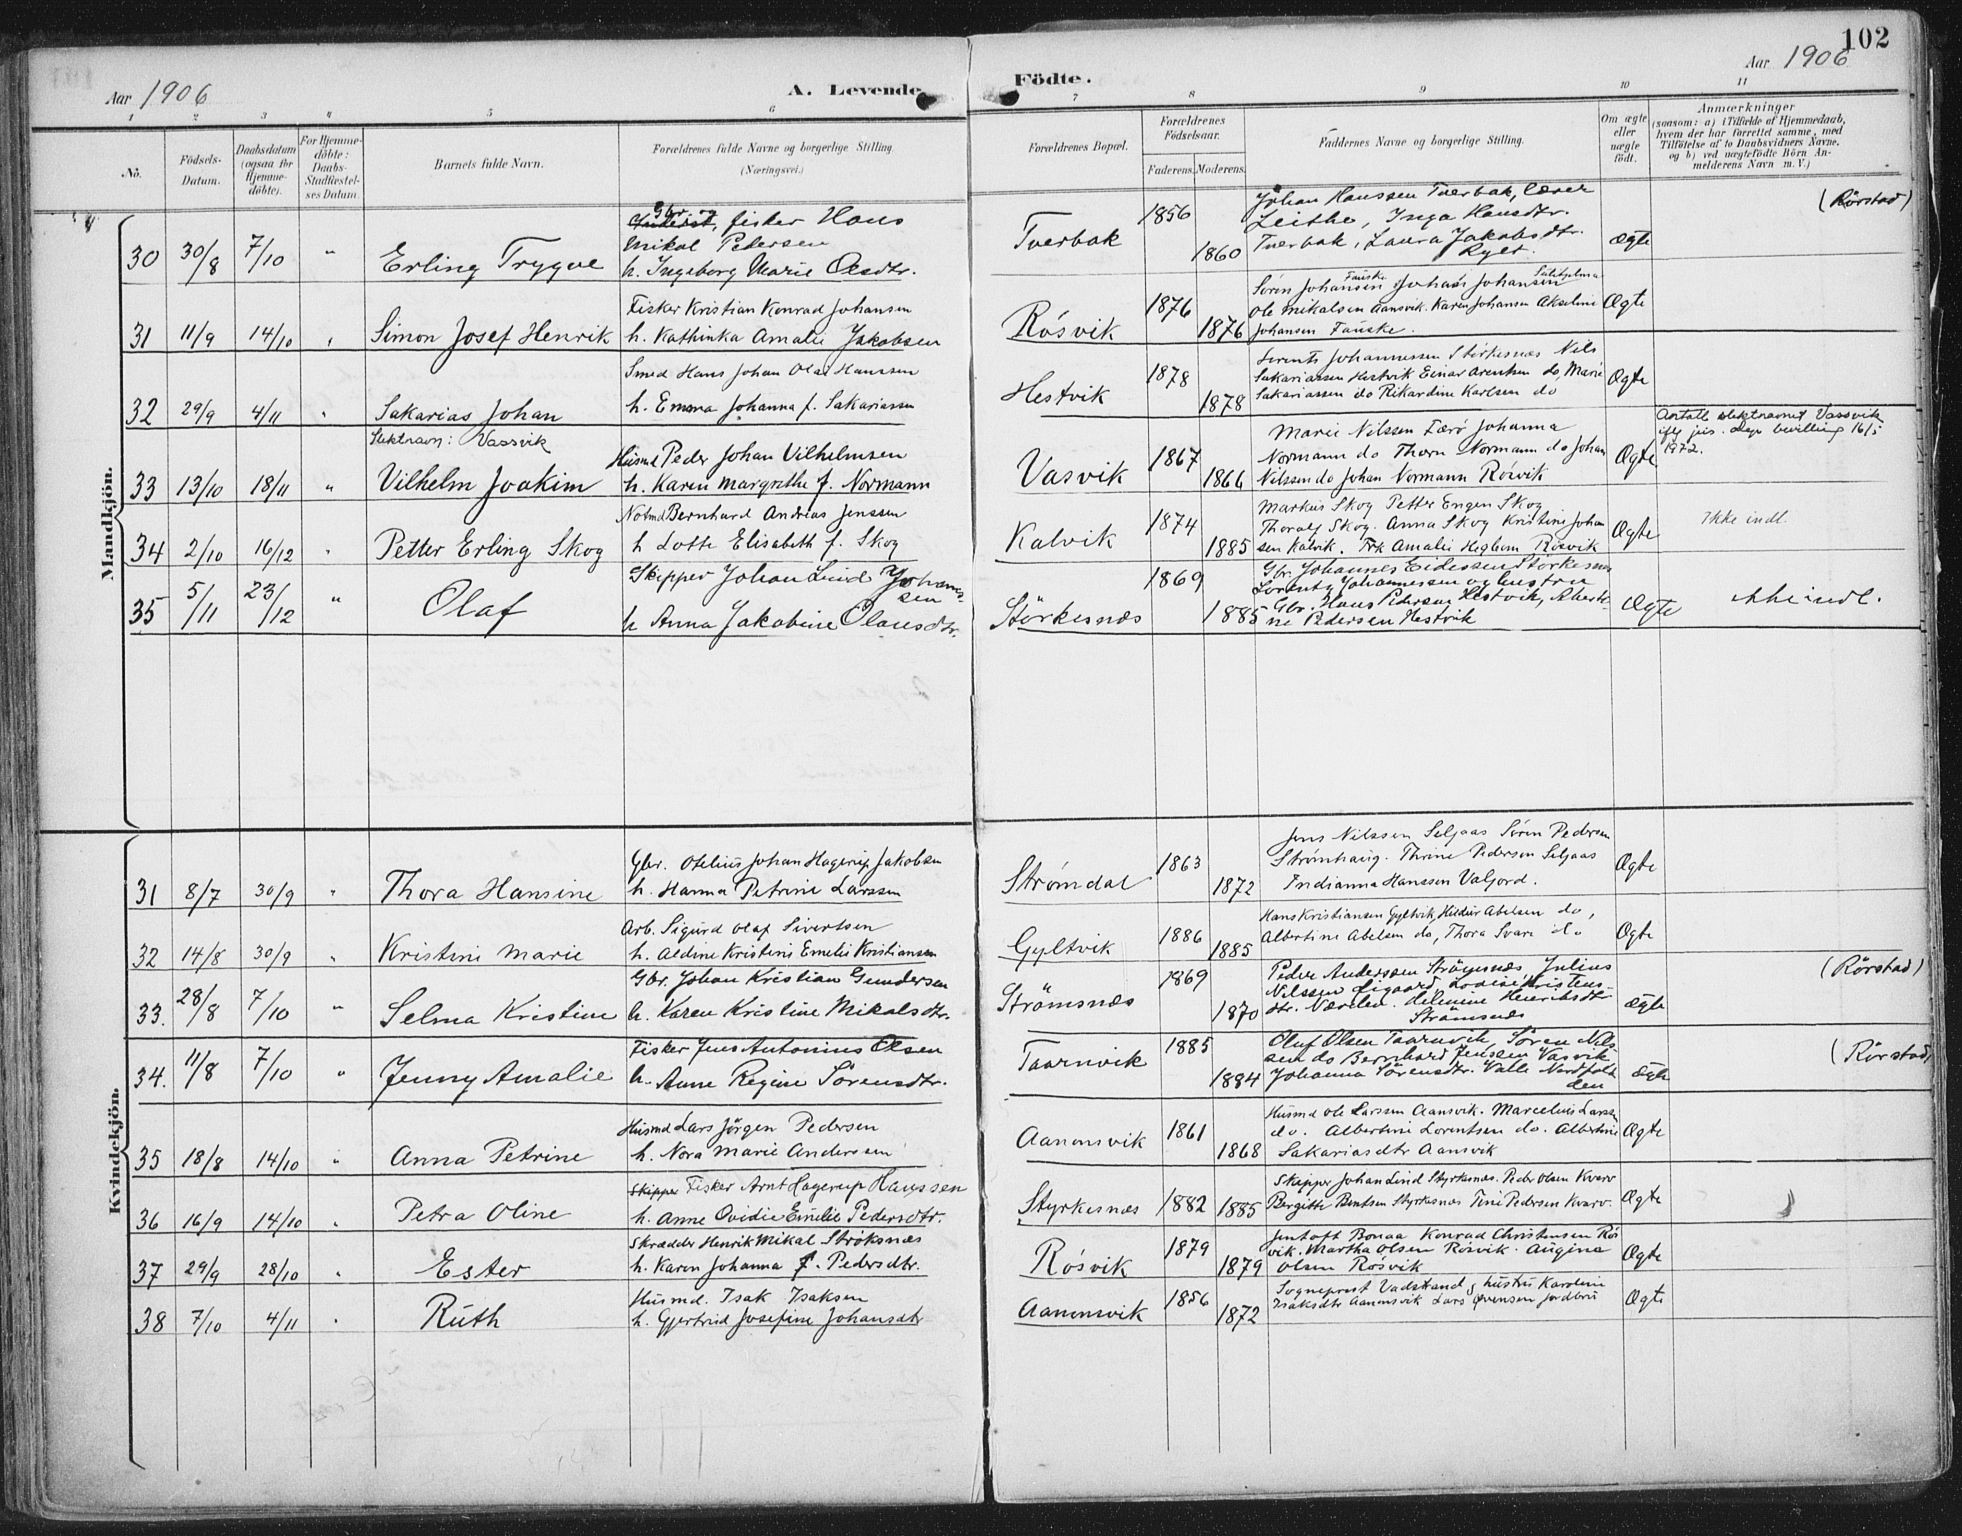 102
Aar 1906
A. Levende
Födte.
Aar 1906
1 2 3 4 5 6 7 8 9 10 11
No.
Födsels-
Datum.
Daabsdatum
(ogsaa for
Hjemme-
döbte).
For Hjemme-
döbte:
Daabs-
Stadfæstel-
ses Datum
Barnets fulde Navn.
Forældrenes fulde Navne og borgerlige Stilling
(Næringsvei.)
Forældrenes Bopæl.
Forældrenes
Födselsaar.
Faderens. Moderens.
Faddernes Navne og borgerlige Stilling.
Om ægte
eller
uægte
födt.
Anmærkninger
(saasom: a) i Tilfælde af Hjemmedaab,
hvem der har forrettet samme, med
Tilföielse af to Daabsvidners Navne,
og b) ved uægtefödte Börn An-
melderens Navn m. V.)
Mandkjön.
30 30/8 7/10 " Erling Trygve
Gbr., fisker Hans
Mikal Pedersen
h. Ingeborg Marie Olsdtr.
Tverbak 1856 1860
Johan Hanssen Tverbak, Lærer
Leithe, Inga Hansdtr.
Tverbak, Laura Jakobsdtr.
ægte
(Rörstad)
31 11/9 14/10 " Simon Josef Henrik
Fisker Kristian Konrad Johansen
h. Kathinka Amalie Jakobsen
Rósvik 1876 1876
Sören Johansen Fauske Johan Johansen Sulitjelma
Ole Mikalsen Aansvik. Karen Johansen Akseline
Johansen Fauske.
Ægte
32 29/9 4/11 " Sakarias Johan
Smed Hans Johan Olai Hanssen
h. Emma Johanna f. Sakariassen
Hestvik 1878 1878
Lorents Johannessen Störkesnæs Nils
Sakariassen Hestvik Einar Arentsen do, Marie
Sakariassen do Rikardine Karlsen do
Ægte
33 13/10 18/11 " Slektnavn: Vassvik
Vilhelm Joakim
Husmd Peder Johan Vilhelmsen
h. Karen Margrethe f. Normann
Vasvik 1867 1866
Marie Nilssen Færö Johanna
Normann do Thorn Normann do Johan
Nilssen do Johan Normann Rósvik
Ægte
Antatt slektnavnet Vassvik
iflg jus. Dep bevilling 16/5
1972.
34 2/10 16/12 " Petter Erling Skog
Notmd Bernhard Andreas Jenssen
h Lotte Elisabeth f. Skog
Kalvik 1874 1885
Markus Skog Petter Engen Skog
Thoralf Skog. Anna Skog Kristine Johan
sen Kalvik. Frk Amalie Rösvik
Ægte
Ikke indl.
35 5/11 23/12 " Olaf
Skipper Johan Lind Johannes-
sen
h Anna Jakobine Olausdtr.
Störkesnæs 1869 1885
Gbr. Johannes Eidissen Störkesnæs
Lorents Johannessen og hustru
Gbr. Hans Pedersen Hestvik, Alberti-
ne Pedersen Hestvik
Ægte
ikke indl.
Kvindekjön.
31 8/7 30/9 " Thora Hansine
Gbr. Otelius Johan Hagerup Jakobsen
h. Hanna Petrine Larssen
Strømdal 1863 1872
Jens Nilssen Seljaas Sören Pedersen
Strömhaug. Thrine Pedersen Seljaas
Indianna Hanssen Valjord.
Ægte
32 14/8 30/9 " Kristine Marie
Arb. Sigurd Olaf Sivertsen
h. Aldine Kristine Emelie Kristiansen
Gyltvik 1886 1885
Hans Kristiansen Gyltvik, Hildur Abelsen do,
Albertine Abelsen do, Thora Svare do
Ægte
33. 28/8 7/10 " Selma Kristine
Gbr. Johan Kristian Gundersen
h. Karen Kristine Mikalsdtr.
Strömsnæs 1869 1870
Peder Anderssen Strömsnæs, Julius
Nilssen, Lovise Kristens-
dtr. Helmine Henriksdtr
Strömsnæs
ægte
(Rörstad)
34. 11/8 7/10 " Jenny Amalie
Fisker Jens Antonius Olsen
h. Anne Regine Sörensdtr.
Taarnvik 1885 1884
Oluf Olsen Taarnvik, Sören Nils-
sen do Bernhard Jenssen Vasvik
Johanna Sörensdtr. Valle Nordfold-
den
ægte
(Rörstad)
35 18/8 14/10 " Anna Petrine
Husmd Lars Jörgen Pedersen
h. Nora Marie Anderssen
Aanonsvik 1861 1868
Husmd Ole Larssen Aansvik. Marcelius Larssn
do. Albertine Lorentsen do. Albertine
Sakariasdtr Aansvik
Ægte
36 16/9 14/10 " Petra Oline
Skipper Fisker Arnt Hagerup Hanssen
h. Anne Ovidie Emelie Pedersdtr.
Styrkesnæs 1882 1885
Skipper Johan Lind Styrkesnæs. Peder Olsen Kvarv
Bergithe Bentsen Styrkesnæs Tine Pedersen Kvarv.
Ægte
37 29/9 28/10 " Ester
Skrædder Henrik Mikal Stroksnæs
h. Karen Johanna f. Pedersdtr.
Rósvik 1879 1879
Jentoft Bonaa Konrad Christensen Rös
vik. Martha Olsen Rösvik. Augine
Olsen Rösvik
Ægte
38 7/10 4/11 " Ruth
Husmd. Isak Isaksen
h. Gjertrud Josefine Johansdtr
Aanonsvik 1856 1872
Sogneprest Vadstrand og hustru Karoline
Isaksdtr Aanonsvik Lars Evensen Jordbru
Ægte